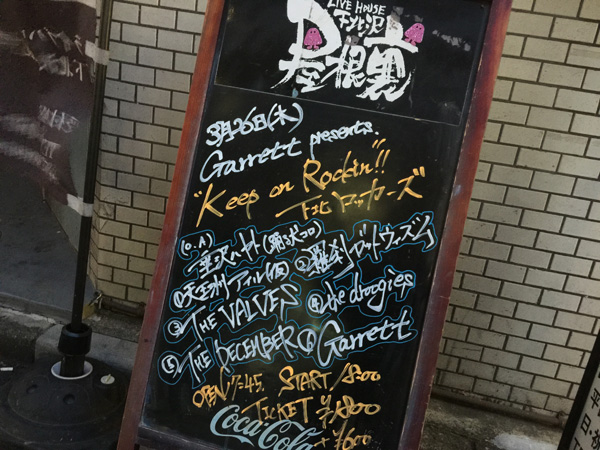 LIVE HOUSE
下北沢
屋根裏
3月26日(木)
Garrett presents.
"Keep on Rockin'!!
下北ロッカーズ"
(O.A)
①天王洲アイル(仮) ②羅刹ゴッドウィズム
③THE VALVES ④the doogies
⑤THE DECEMBER ⑥Garrett
OPEN 17:45. START 18:00
TICKET ¥1800
Coca-Cola + ¥600